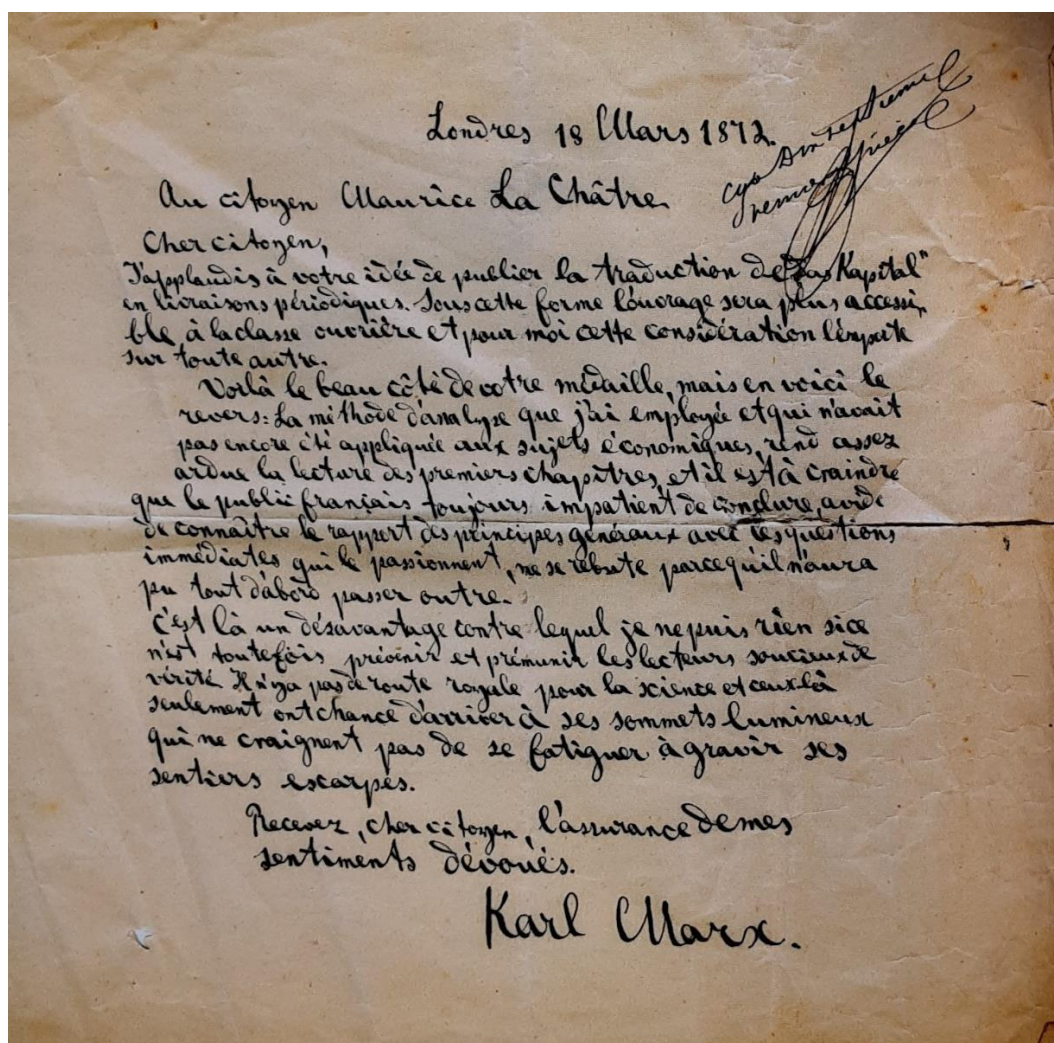 Londres 18 Mars 1872.
Au citoyen Maurice La Châtre.
Cher citoyen,
J'applaudis à votre idée de publier la traduction de "Das Kapital"
en livraisons périodiques. Sous cette forme l'ouvrage sera plus accessi
ble à la classe ouvrière et pour moi cette considération l'emporte
sur toute autre.
Voilà le beau côté de votre médaille, mais en voici le
revers: La méthode d'analyse que j'ai employée et qui n'avait
pas encore été appliquée aux sujets économiques, rend assez
ardue la lecture des premiers chapitres, et il est à craindre
que le public français toujours impatient de conclure, avide
de connaître le rapport des principes généraux avec les questions
immédiates qui le passionnent, ne se rebute parcequ'il n'aura
pu tout d'abord passer outre.
C'est là un désavantage contre lequel je ne puis rien si ce
n'est toutefois prévenir et prémunir les lecteurs soucieux de
vérité. Il n'y a pas de route royale pour la science et ceux-là
seulement ont chance d'arriver à ses sommets lumineux
qui ne craignent pas de se fatiguer à gravir ses
sentiers escarpés.
Recevez, cher citoyen, l'assurance de mes
sentiments dévoués.
Karl Marx.